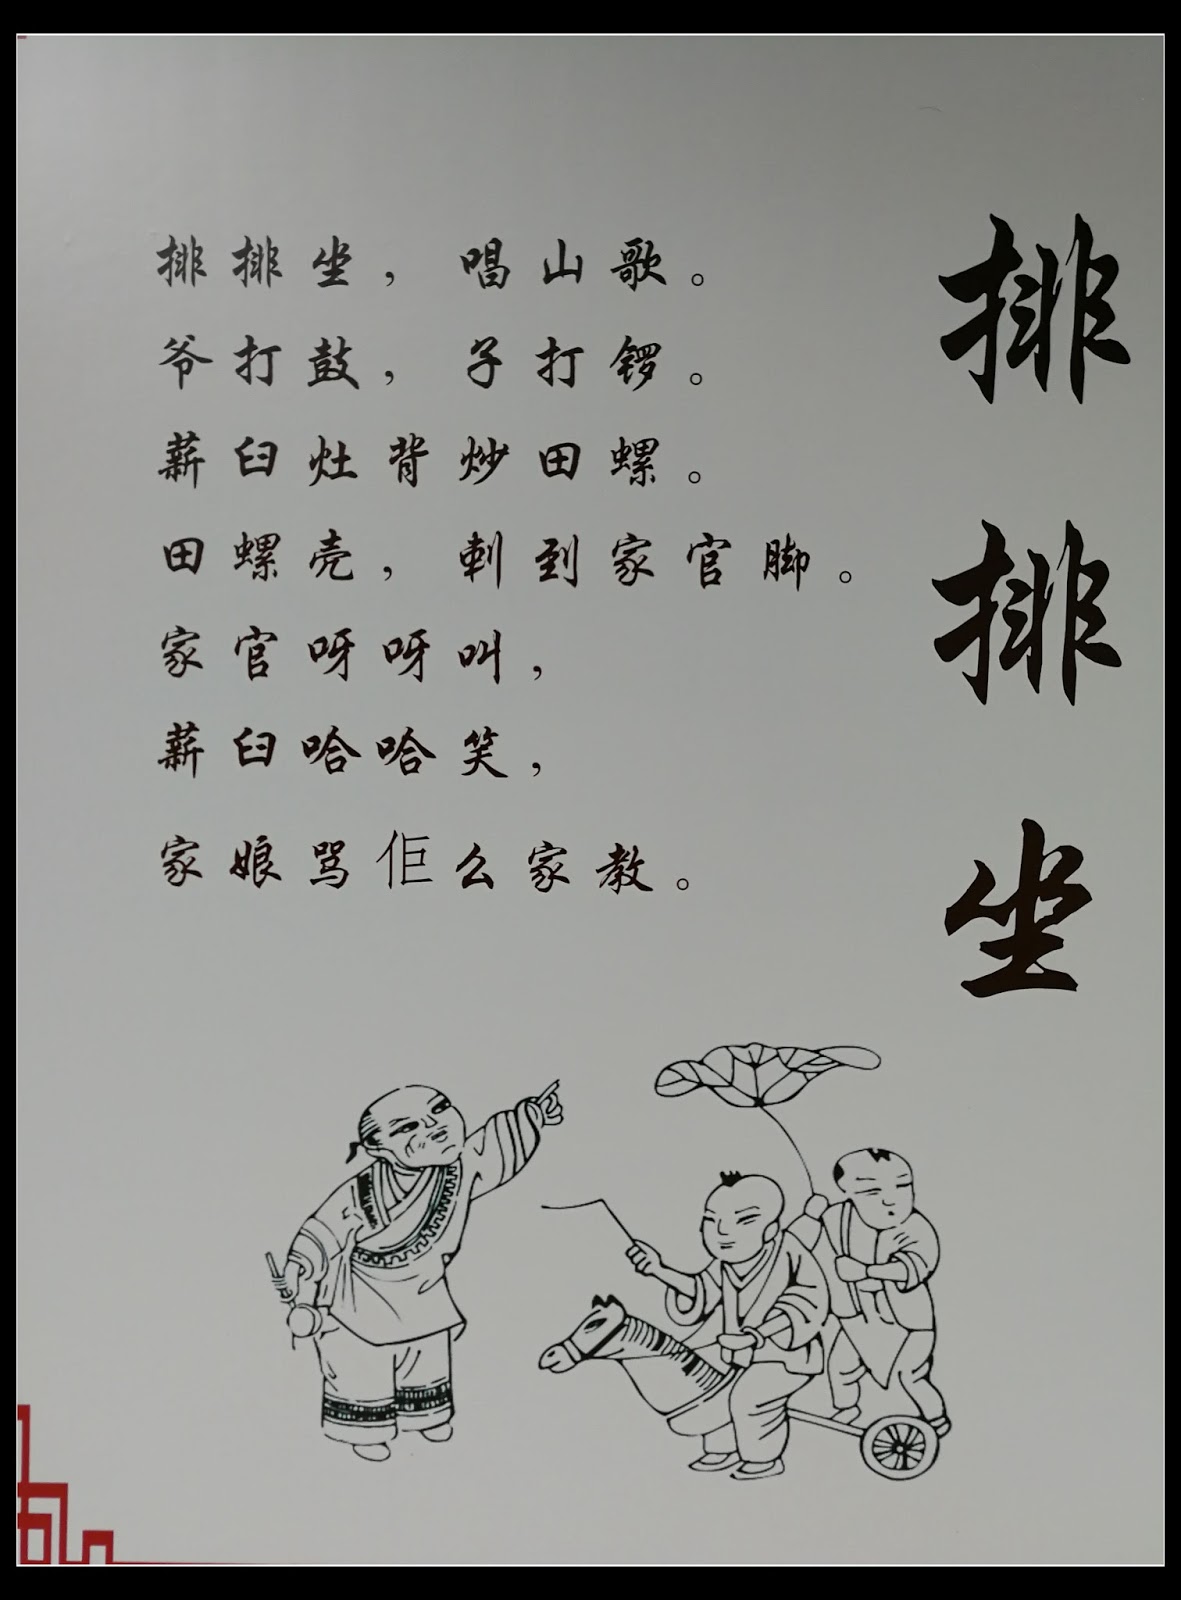 排排坐
排排坐，唱山歌。
爷打鼓，子打锣。
薪臼灶背炒田螺。
田螺壳，刺到家官脚。
家官呀呀叫，
薪臼哈哈笑，
家娘骂佢么家教。